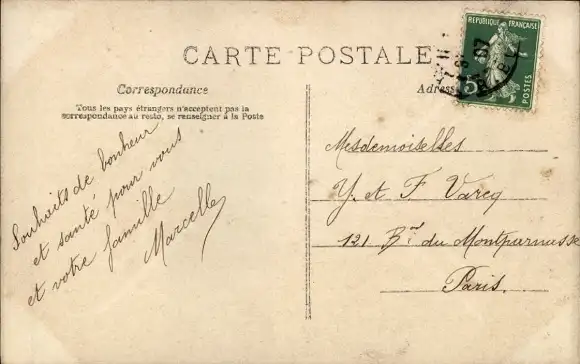 CARTE POSTALE
RÉPUBLIQUE FRANÇAISE
5
POSTES
Correspondance
Tous les pays étrangers n'acceptent pas la
correspondance au resto, se renseigner à la Poste
Souhaits de bonheur
et santé pour vous
et votre famille
Marcelle
Adress
Mesdemoiselles
Y. et F. Varcq
121 Bd du Montparnasse
Paris.